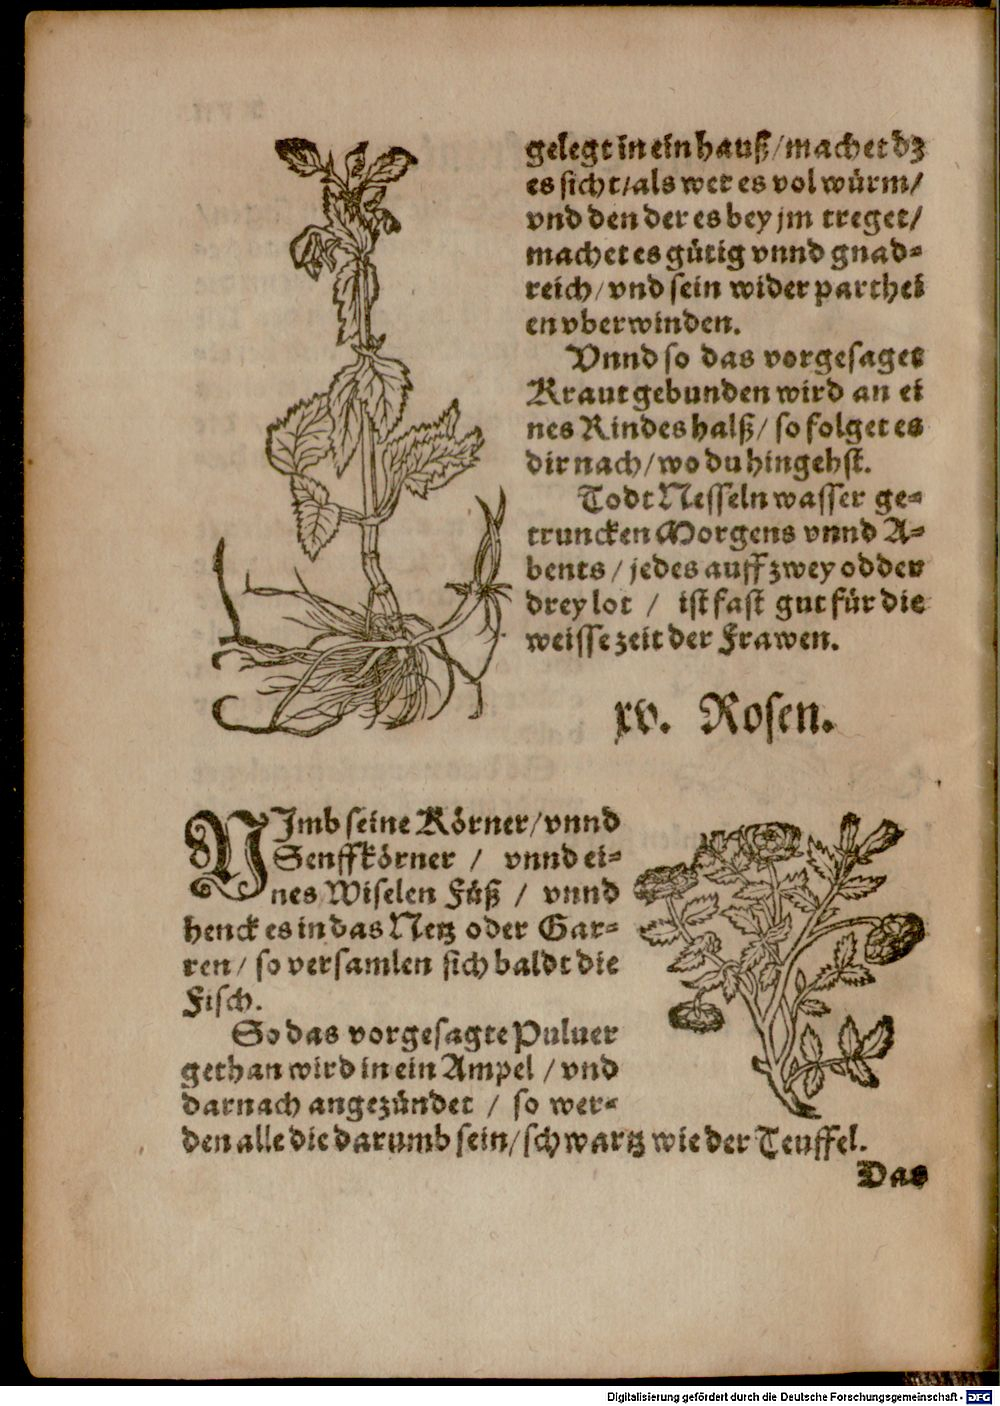 gelegt in ein hauß/machet dz
es sicht/als wer es vol würm/
vnd den der es bey jm treget/
machet es gütig vnnd gnad=
reich/vnd sein wider parthei
en vberwinden.
Vnnd so das vorgesaget
Kraut gebunden wird an ei
nes Rindes halß/so folget es
dir nach/wo du hingehst.
Todt Nesseln wasser ge=
truncken Morgens vnnd A=
bents/jedes auff zwey odder
drey lot / ist fast gut für die
weisse zeit der Frawen.
xv. Rosen.
NJmb seine Körner/vnnd
Senffkörner / vnnd ei=
nes Wiselen Füß / vnnd
henck es in das Netz oder Gar=
ren/so versamlen sich baldt die
Fisch.
So das vorgesagte Puluer
gethan wird in ein Ampel /vnd
darnach angezündet / so wer=
den alle die darumb sein/schwartz wie der Teuffel.
Das
Digitalisierung gefördert durch die Deutsche Forschungsgemeinschaft - DFG